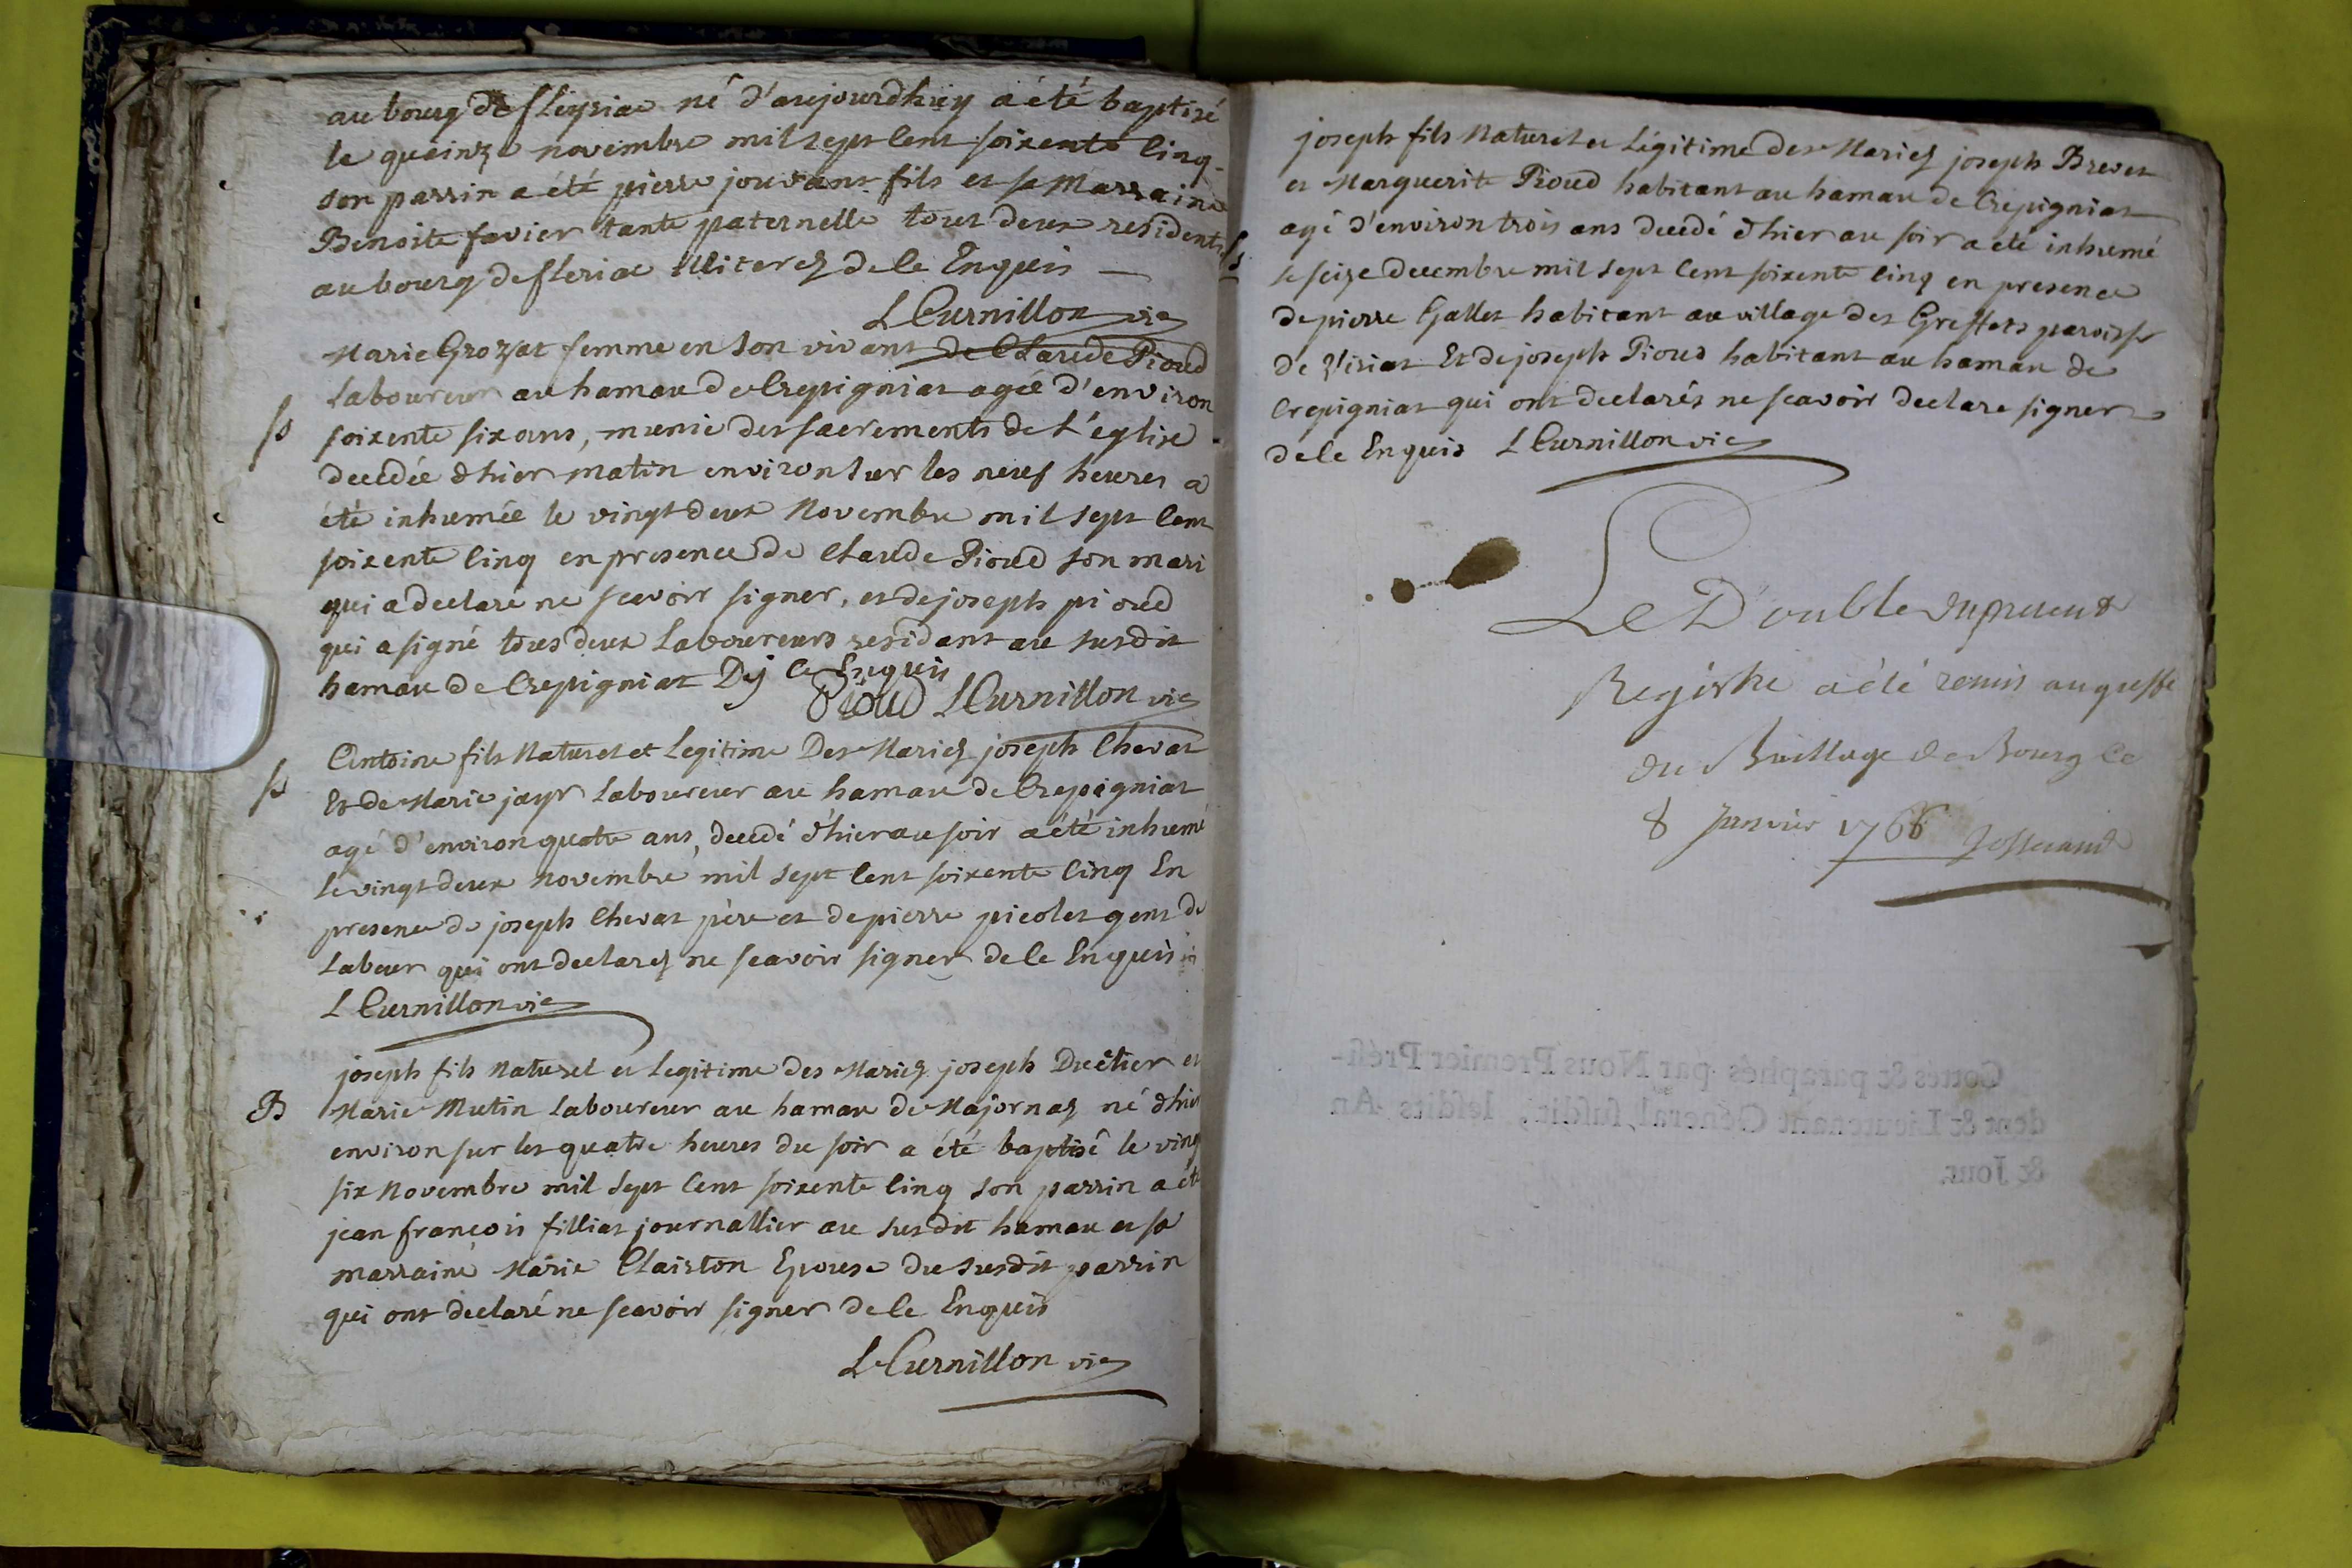 au bourg de fleyriac né d'aujourdhuy a été baptisé
le quinze novembre mil sept Cent soixente Cinq
son parrin a été pierre jouvant fils et sa Marraine
Benoite favier tante paternelle tous deux residents
au bourg de fleriac illiterez de le Enquis
L Curnillon vic
Marie Grozat femme en son vivant de Claude Pioud
Laboureur au hamau de Crepigniat agée d'environ
S
soixente six ans, munie des sacrements de L'église
decedée dhier matin environ sur les neuf heures a
été inhumée le vingt deux Novembre mil sept Cent
soixente Cinq en presence de Claude Pioud son mari
qui a declaré ne scavoir signer, et de joseph pioud
qui a signé tous deux Laboureurs residant au susdit
hamau de Crepigniat De ce Enquis
Pioud L Curnillon vic
Antoine fils Naturel et Legitime Des Mariez joseph Chevat
S
Et de Marie jayr Laboureur au hamau de Crepigniat
agé d'environ quatre ans, decedé d'hier au soir a été inhumé
le vingt deux novembre mil sept Cent soixente Cinq En
presence de joseph Chevat père et de pierre picolet gens de
Labeur qui ont declarez ne scavoir signer de le Enquis
L Curnillon vic
joseph fils Naturel et Legitime des Mariez joseph Duètier et
B
Marie Mutin Laboureur au hamau de Majornaz né dhier
environ sur les quatre heures du soir a été baptisé le ving
six Novembre mil sept Cent soixente Cinq son parrin a été
jean françois filliat journallier au susdit hamau et sa
marraine Marie Claiston Epouse du susdit parrin
qui ont declaré ne scavoir signer de le Enquis
L Curnillon vic
joseph fils Naturel et Légitime des Mariez joseph Brevet
et Marguerite Pioud habitant au hamau de Crepigniat
agé d'environ trois ans decedé d'hier au soir a eté inhumé
S
le seize decembre mil sept Cent soixente Cinq en presence
de pierre Gallet habitant au village des Greffets paroisse
de Viriat Et de joseph Pioud habitant au hamau de
Crepigniat qui ont declarés ne scavoir declare signer
de le Enquis L Curnillon vic
Le Double du present
Registre a été remis au greffe
du Bailliage de Bourg le
8 Janvier 1766 Josserand
Cottés & paraphés par Nous Premier Prési-
dent & Lieutenant Général, susdit, lesdits An
& Jour.